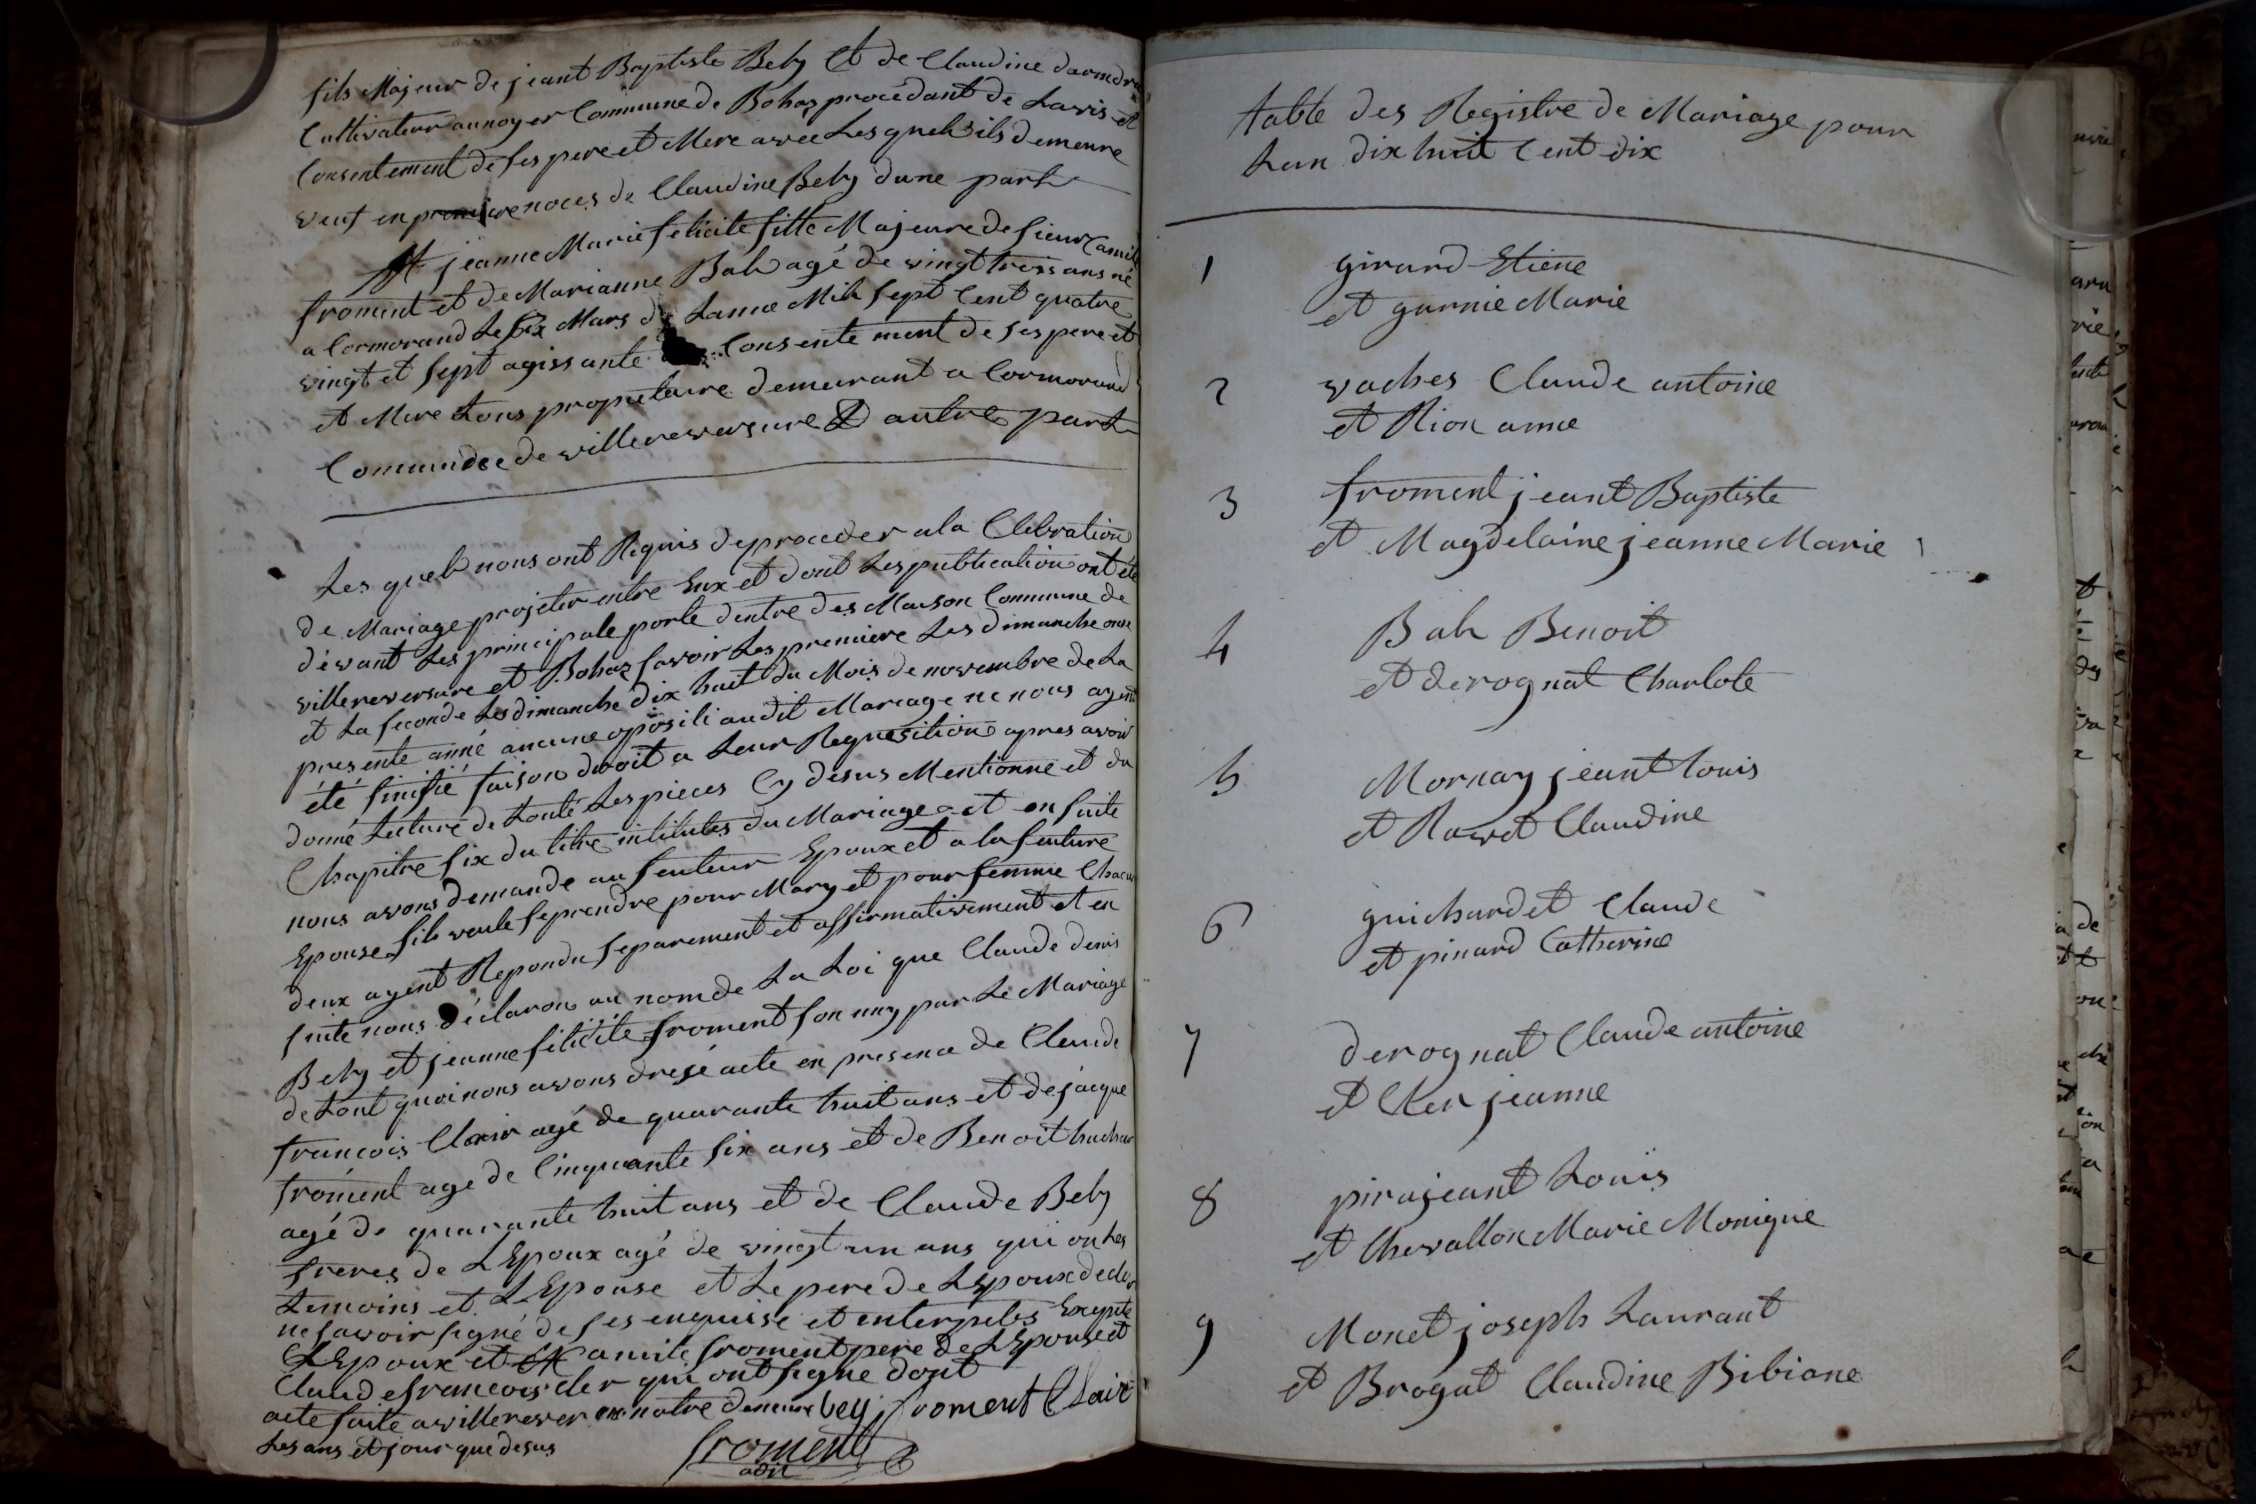 fils Majeur de jeant Baptiste Bely Et de Claudine darmdra
Cultivateur aunoyer Commune de Bohas procédant de Lavis et
Consentement de ses pere et Mere avec Les quels ils demeure
veuf en premiere noces de Claudine Bely dune part
Et jeanne Marie felicite fille Majeure de sieur Camile
froment et de Marianne Bah agé de vingt trois ans né
a Cormorand Le six Mars de Lanne Mil sept Cent quatre
vingt et sept agissante Consente ment de ses pere et
et Mere tous propietaire demeurant a Cormorand
Commundee de villereversure D autre part
Les quels nous ont Requis de proceder a la Clebration
de Mariage projeter entre Eux et dont Les publication ont été
dévant Les principale porte dentre des Maison Commune de
villereversure et Bohas savoir Les premiere Les dimanche onse
et La seconde Les dimanche dix huit du Mois de novembre de La
presente anné aucune oposili audit Mariage ne nous ayent
été sinifié faison droit a Leur Requesition apres avoir
donné Lecture de touté Les pieces Cy desus Mentionné et du
Chapitre six du titre intitules du Mariage et en suite
nous avons demande au feuteur Epoux et a la feuture
Epouse sils veule se prendre pour Mary et pour femme Chacun
deux ayent Repondu separement et affirmativement et en
suite nous déclaron au nom de La Loi que Claude denis
Bely et jeanne félicite froment son uny par Le Mariage
de tout quoi nous avons dresé acte en presence de Claude
francois Clair agé de quarante huit ans et de jacque
froment age de Cinquante six ans et de Benoit huchar
agé de quarante huit ans et de Claude Bely
freres de LEpoux agé de vingt un ans qui on Les
temoins et LEpouse et Le pere de LEpoux de cler
ne savoir signé de ses enquise et enterpeles Exepte
LEpoux et Camile froment pere de LEpouse et
Claude francois cler qui ont signe dont
acte faite a villerever en notre demeure bely j froment Clair
Les ans et jour que desus
froment
adit
table des Registre de Mariage pour
Lan dix huit Cent dix
1 girard Etiene
et gurnie Marie
2 vaches Claude antoine
et Rion anne
3 froment jeant Baptiste
et Magdelaine jeanne Marie
4 Bah Benoit
et derognat Charlote
5 Mornay jeant Louis
et Ravet Claudine
6 guichardet Claude
et pinard Catherine
7 derognat Claude antoine
et Cler jeanne
8 pirajeant Louis
et Chevallon Marie Monique
9 Monet joseph Laurant
et Brogat Claudine Bibiane